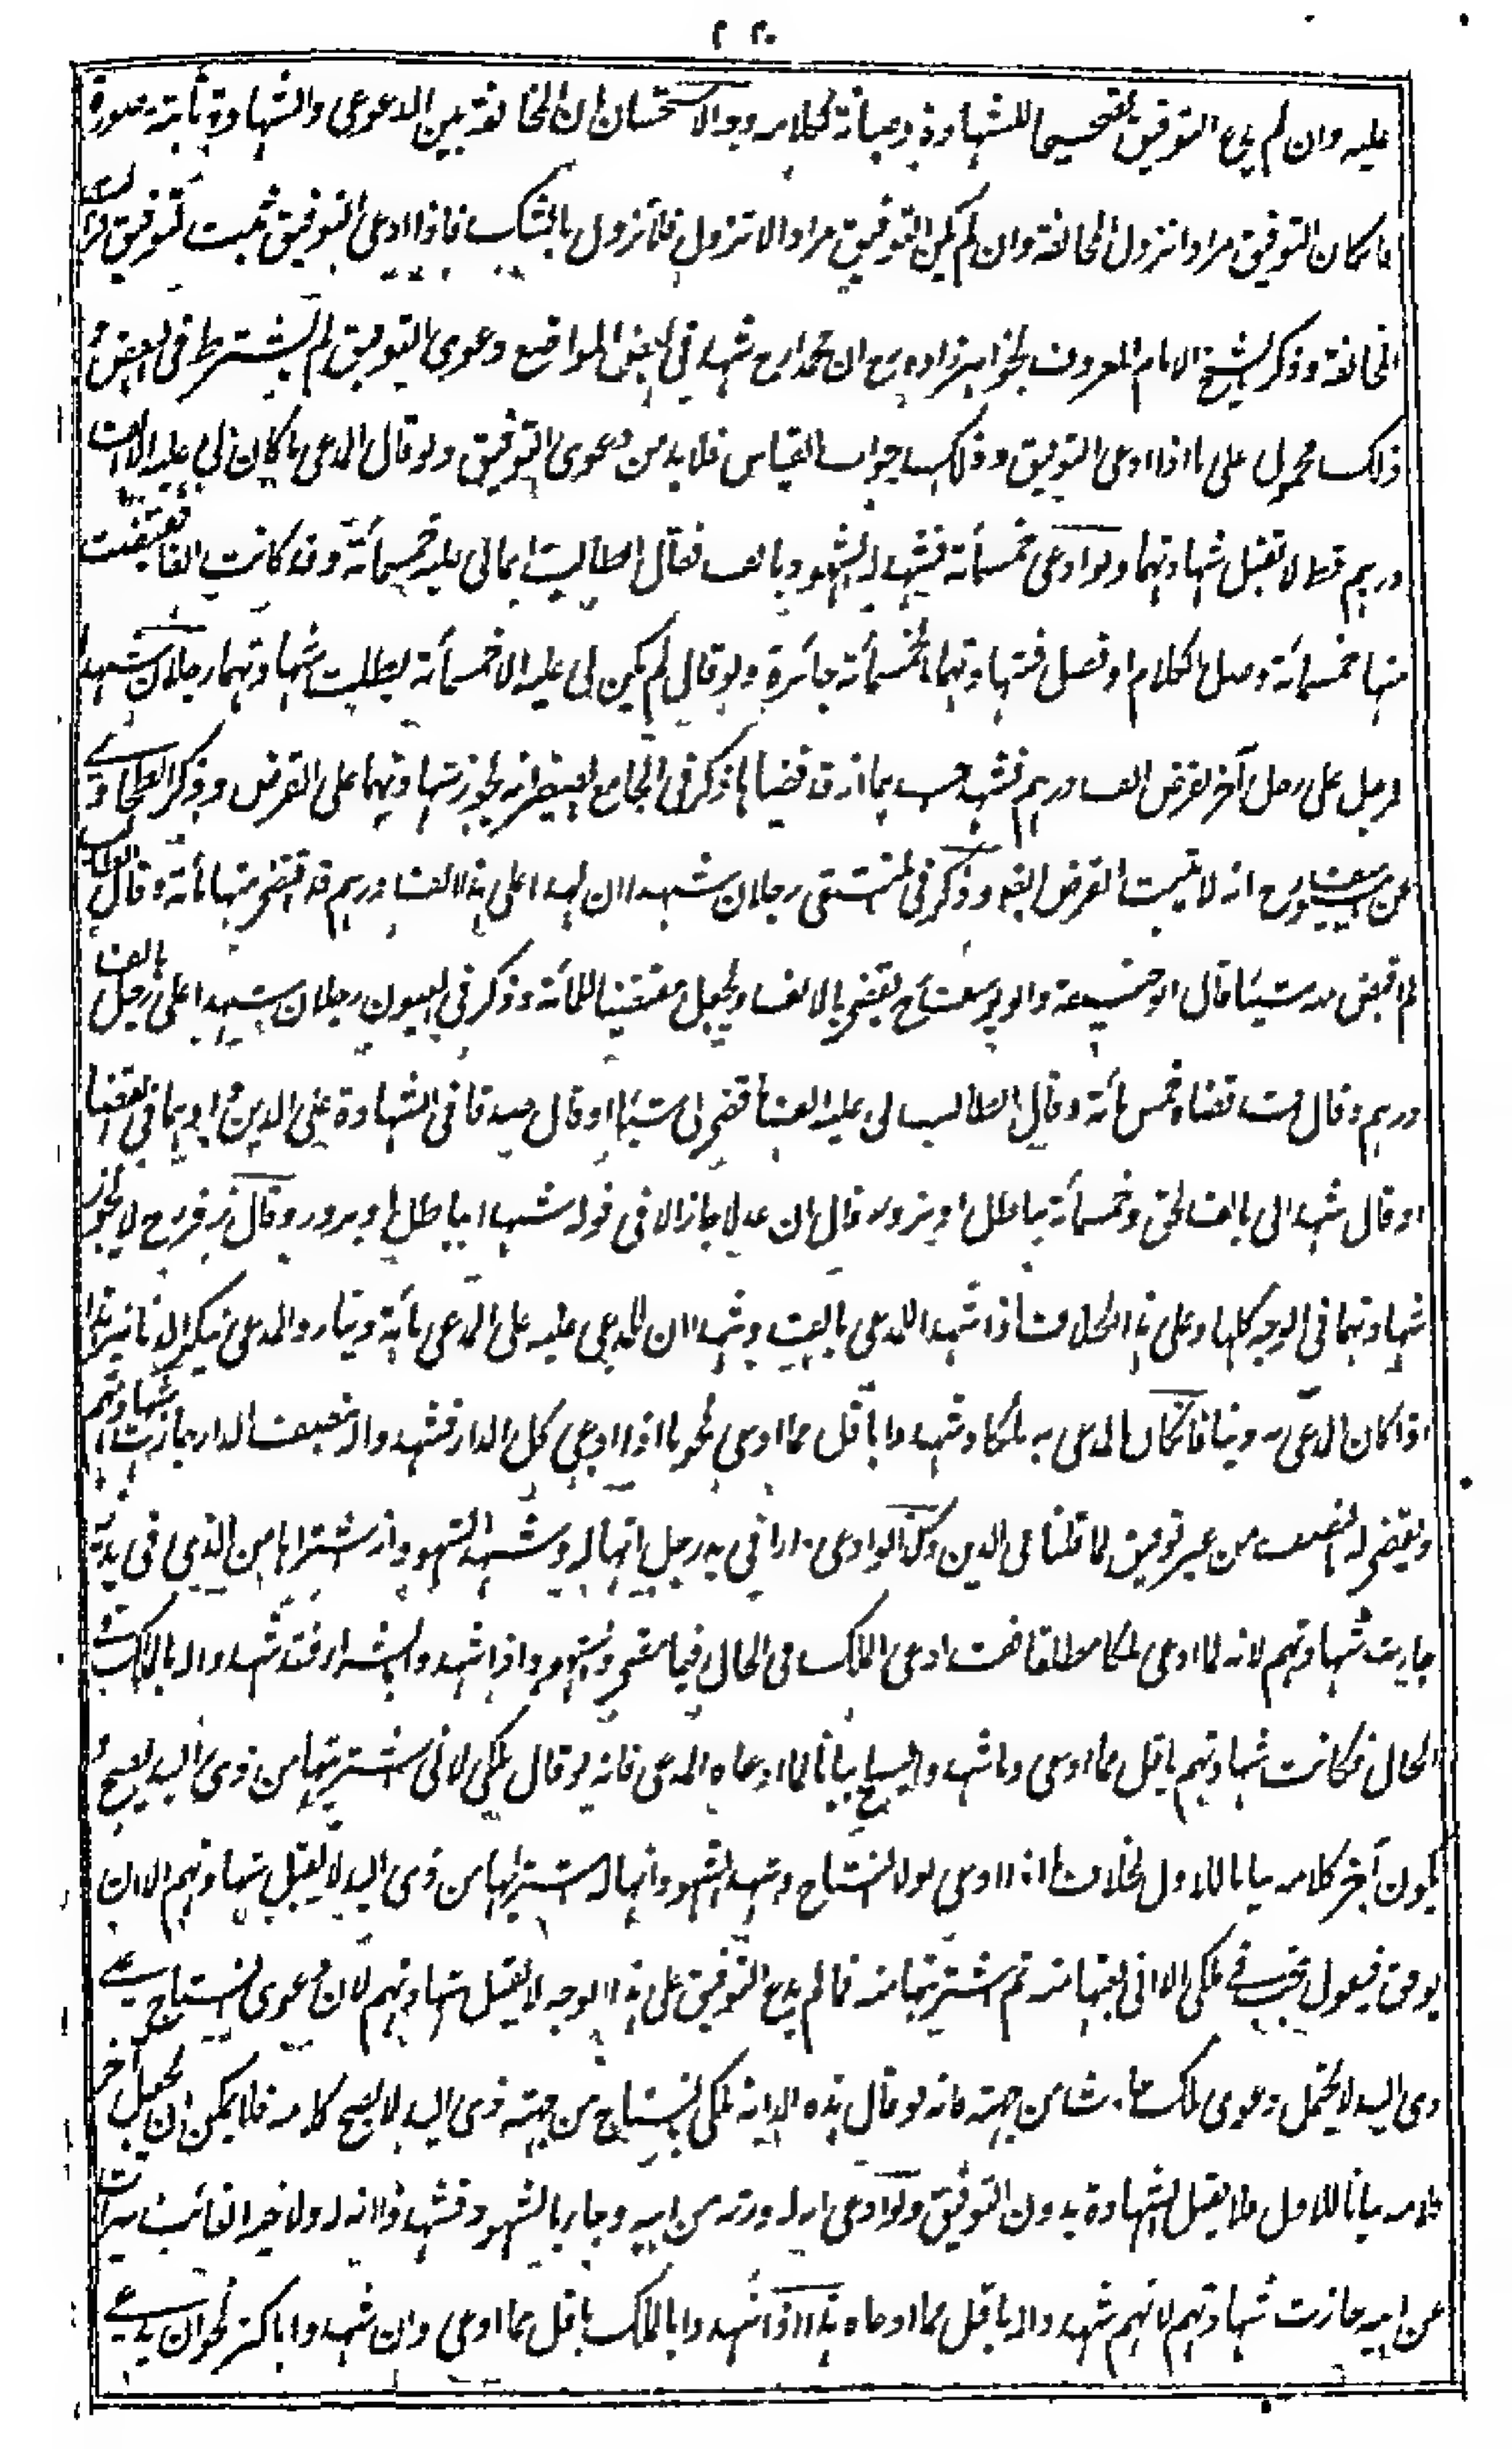 ٢٢٠
عليه وان لم يدع التوفيق تصحيحا للشهادة وصيانة لكلامه وجه الاستحسان ان المخالفة بين الدعوى والشهادة ثابتة صورة
فان كان التوفيق مرادا تزول المخالفة وان لم يكن التوفيق مرادا لا تزول فلا تزول بالشك فاذا ادعى التوفيق ثبت التوفيق فزالت
المخالفة وذكر الشيخ الامام المعروف بخواهرزاده رح ان محمدا رح شرط في بعض المواضع دعوى التوفيق ولم يشترط في البعض و
ذلك محمول على ما اذا ادعى التوفيق وذلك جواب القياس فلا بد من دعوى التوفيق ولو قال المدعي ما كان لي عليه الا الف
درهم قط لا تقبل شهادتهما ولو ادعى خمسمائة فشهد له الشهود بالف فقال الطالب انما لي عليه خمسمائة وقد كانت الفا فقبضت
منها خمسمائة وصل الكلام او فصل فشهادتهما بخمسمائة جائزة ولو قال لم يكن لي عليه الا خمسمائة بطلت شهادتهما رجلان شهدا
لرجل على رجل آخر بقرض الف درهم فشهد احدهما انه قد قضاها ذكر في الجامع الصغير انه يجوز شهادتهما على القرض وذكر الطحاوي
عن ابي يوسف رح انه لا يثبت القرض ايضا وذكر في المنتقى رجلان شهدا ان لهذا على هذا الف درهم قد اقتضى منها مائة وقال الطالب
لم اقبض منه شيئا قال ابو حنيفة وابو يوسف رح يقضى بالالف ويجعل مقتضيا للمائة وذكر في العيون رجلان شهدا على رجل بالف
درهم وقال قد قضاه خمس مائة وقال الطالب لي عليه الف ما قضى لي شيئا او قال صدقا في الشهادة على الدين واوهما في القضاء
او قال شهدا لي بالف بحق وخمسمائة بباطل او بزور قال ان عدلا جاز الا في قوله شهدا بباطل او بزور وقال زفر رح لا يجوز
شهادتهما في الوجوه كلها وعلى هذا الخلاف اذا شهدا للمدعي بالف وشهدا ان للمدعى عليه على المدعي مائة دينار والمدعي ينكر الدنانير هذا
اذا كان المدعى به دينا فان كان المدعى به ملكا وشهدوا باقل مما ادعى نحو ما اذا ادعى كل الدار فشهدوا له بنصف الدار جازت شهادتهم
ويقضى له بالنصف من غير توفيق لما قلنا في الدين وكذا لو ادعى دارا في يد رجل انها له وشهد الشهود انه اشتراها من الذي في يديه
جازت شهادتهم لانه لما ادعى ملكا مطلقا فقد ادعى الملك في الحال وفيما مضى وشهوده اذا شهدوا بالشراء فقد شهدوا له بالملك في
الحال فكانت شهادتهم باقل مما ادعى وما شهدوا به يصلح بيانا لما ادعاه المدعي فانه لو قال ملكي لاني اشتريتها من ذي اليد يصح و
يكون آخر كلامه بيانا للاول بخلاف ما اذا ادعى اولا النتاج وشهد الشهود انها له اشتراها من ذي اليد لا يقبل شهادتهم الا ان
يوفق فيقول نتجت في ملكي الا اني بعتها منه ثم اشتريتها منه فما لم يدع التوفيق على هذا الوجه لا يقبل شهادتهم لان دعوى النتاج على
ذي اليد لا يحتمل دعوى ملك حادث من جهته فانه لو قال هذه الدابة ملكي بالنتاج من جهة ذي اليد لا يصح كلامه فلا يمكن ان يجعل آخر
كلامه بيانا للاول فلا يقبل الشهادة بدون التوفيق ولو ادعى انه له ورثه من ابيه وجاء بالشهود فشهدوا انه له ولاخيه الغائب ميراث
عن ابيه جازت شهادتهم لانهم شهدوا له باقل مما ادعاه هذا اذا شهدوا بالملك باقل مما ادعى وان شهدوا باكثر نحو ان يدعي